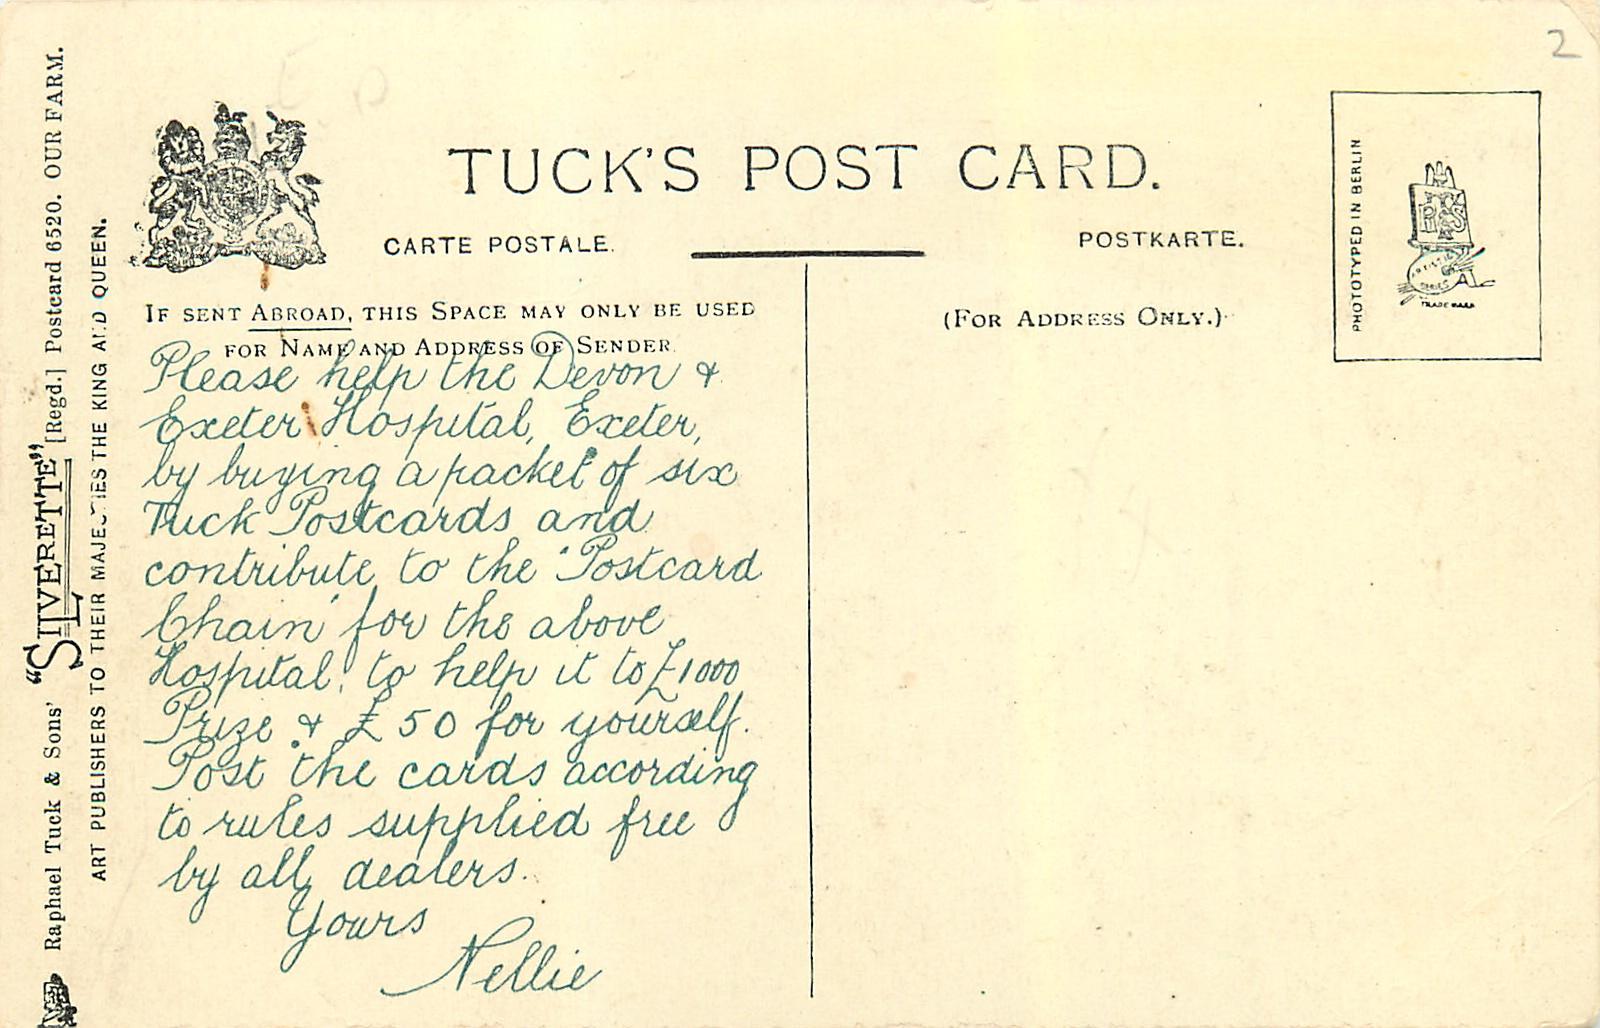 2
TUCK'S POST CARD.
CARTE POSTALE.
POSTKARTE.
IF SENT ABROAD, THIS SPACE MAY ONLY BE USED
FOR NAME AND ADDRESS OF SENDER.
(FOR ADDRESS ONLY.)
PHOTOTYPED IN BERLIN
ARTISTIC
SERIES
TRADE MARK
Please help the Devon &
Exeter Hospital, Exeter,
by buying a packet of six
Tuck Postcards and
contribute to the "Postcard
Chain" for the above
Hospital, to help it to £1000
Prize & £50 for yourself.
Post the cards according
to rules supplied free
by all dealers.
Yours
Nellie
Raphael Tuck & Sons' "SILVERETTE" [Regd.] Postcard 6520. OUR FARM.
ART PUBLISHERS TO THEIR MAJESTIES THE KING AND QUEEN.